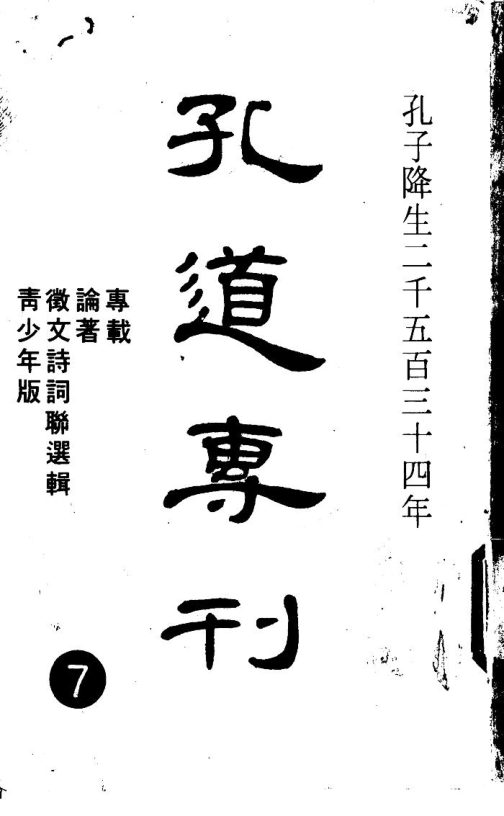 孔子降生二千五百三十四年
孔道專刊
專載
論著
徵文詩詞聯選輯
靑少年版
7